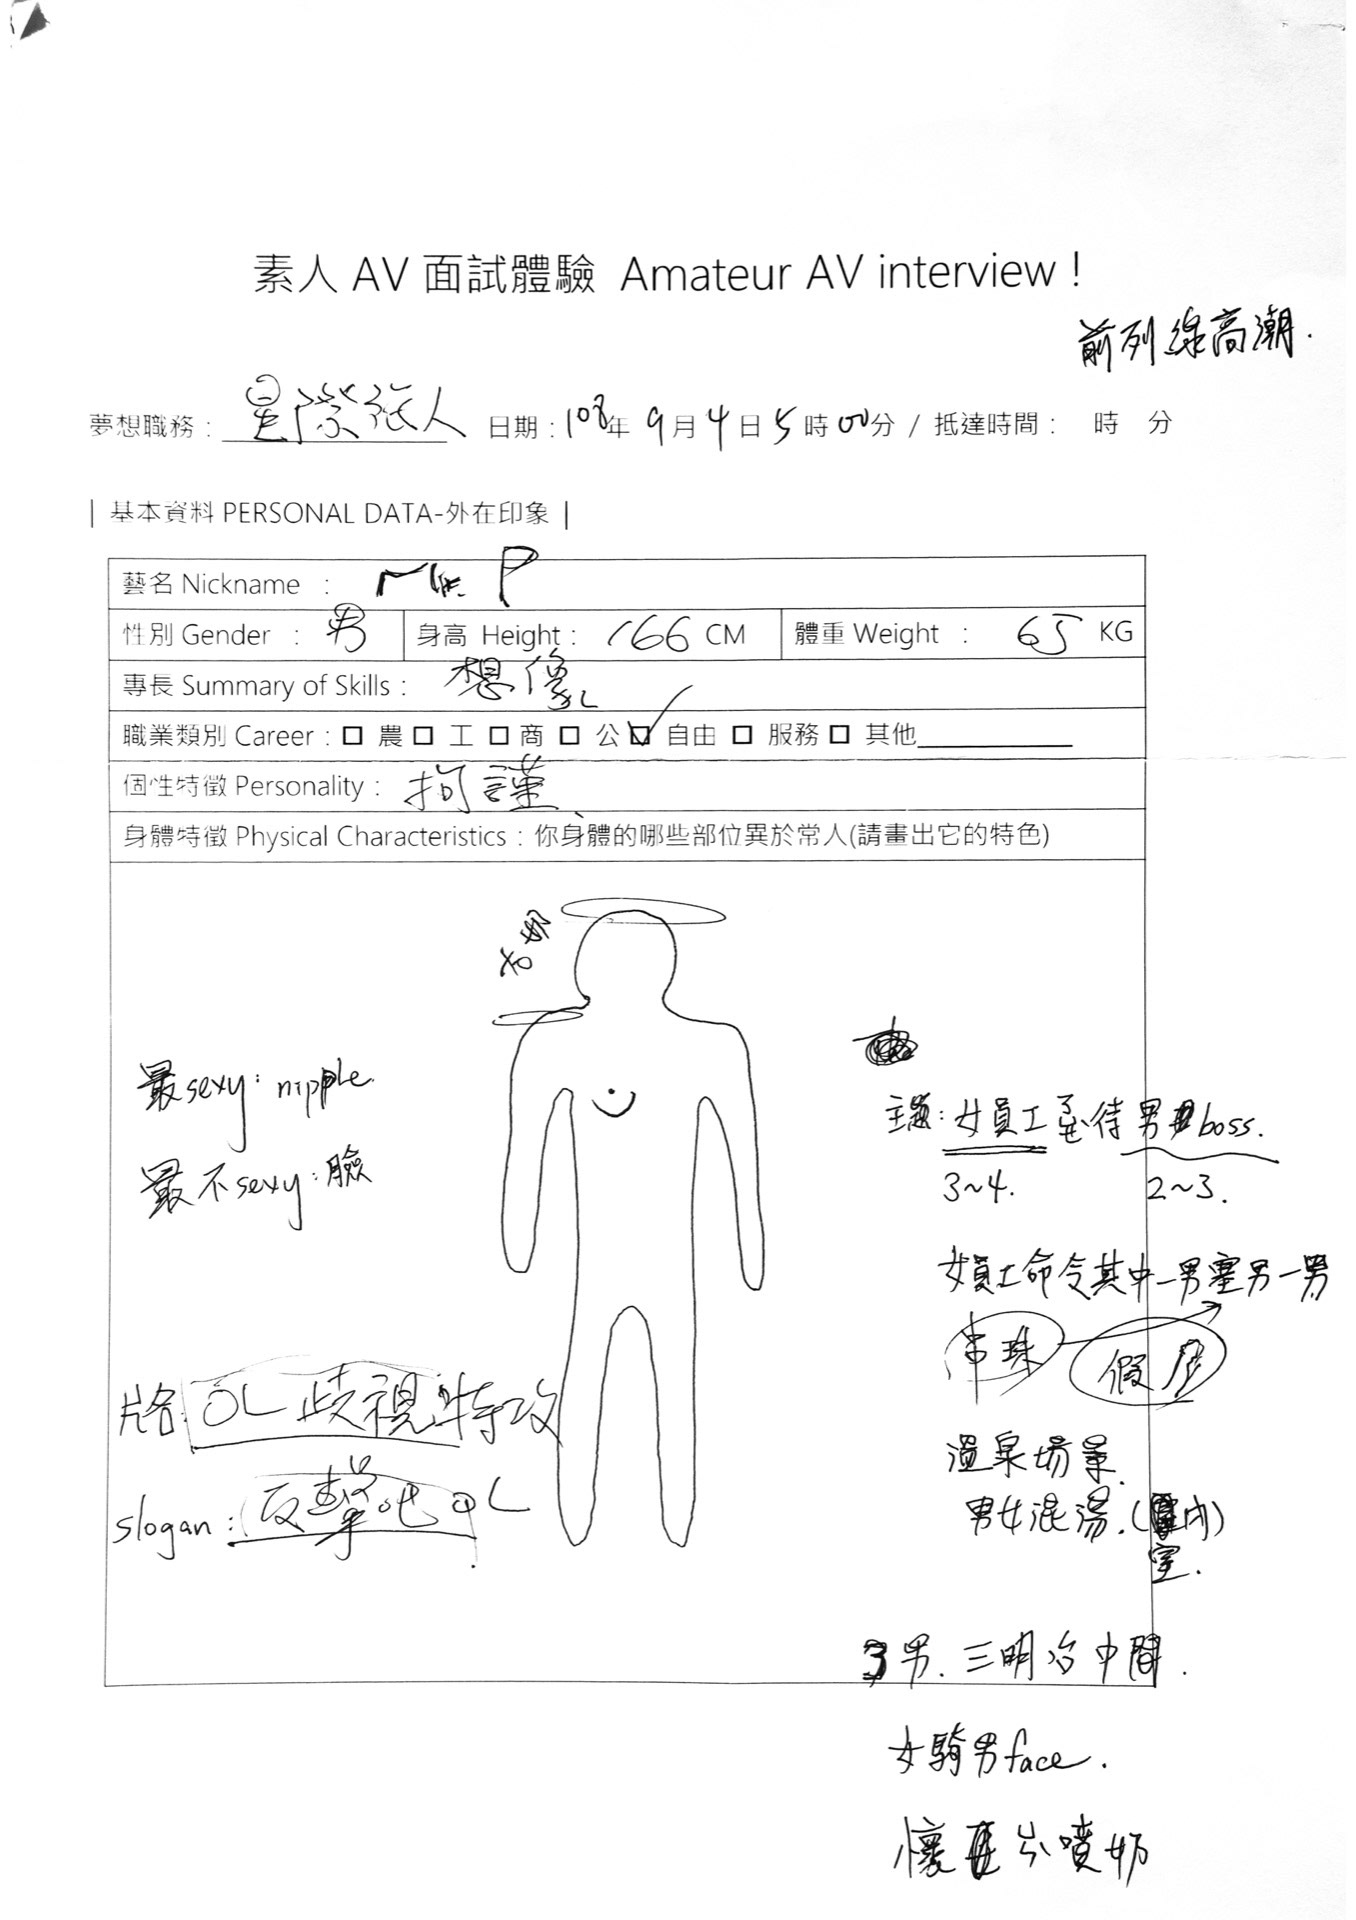 素人 AV 面試體驗 Amateur AV interview !
前列線高潮.
夢想職務 : 星際 人 日期 : 108年 9月 4日 5時 00分 / 抵達時間 : 時 分
| 基本資料 PERSONAL DATA-外在印象 |
藝名 Nickname : P
性別 Gender : 男 身高 Height : 166 CM 體重 Weight : 65 KG
專長 Summary of Skills : 想像
職業類別 Career : □ 農 □ 工 □ 商 □ 公 ☑ 自由 □ 服務 □ 其他
個性特徵 Personality : 拘謹
身體特徵 Physical Characteristics : 你身體的哪些部位異於常人(請畫出它的特色)
最sexy: nipple.
最不sexy: 臉
主題: 女員工 待男 boss.
3~4. 2~3.
女員工命令其中一男塞另一男
串珠 假
溫泉場景.
男女混湯. ( 內)
室.
片名: OL 歧視特攻
slogan: 反擊吧 OL
3男. 三明治中間.
女騎男face.
懷 噴奶